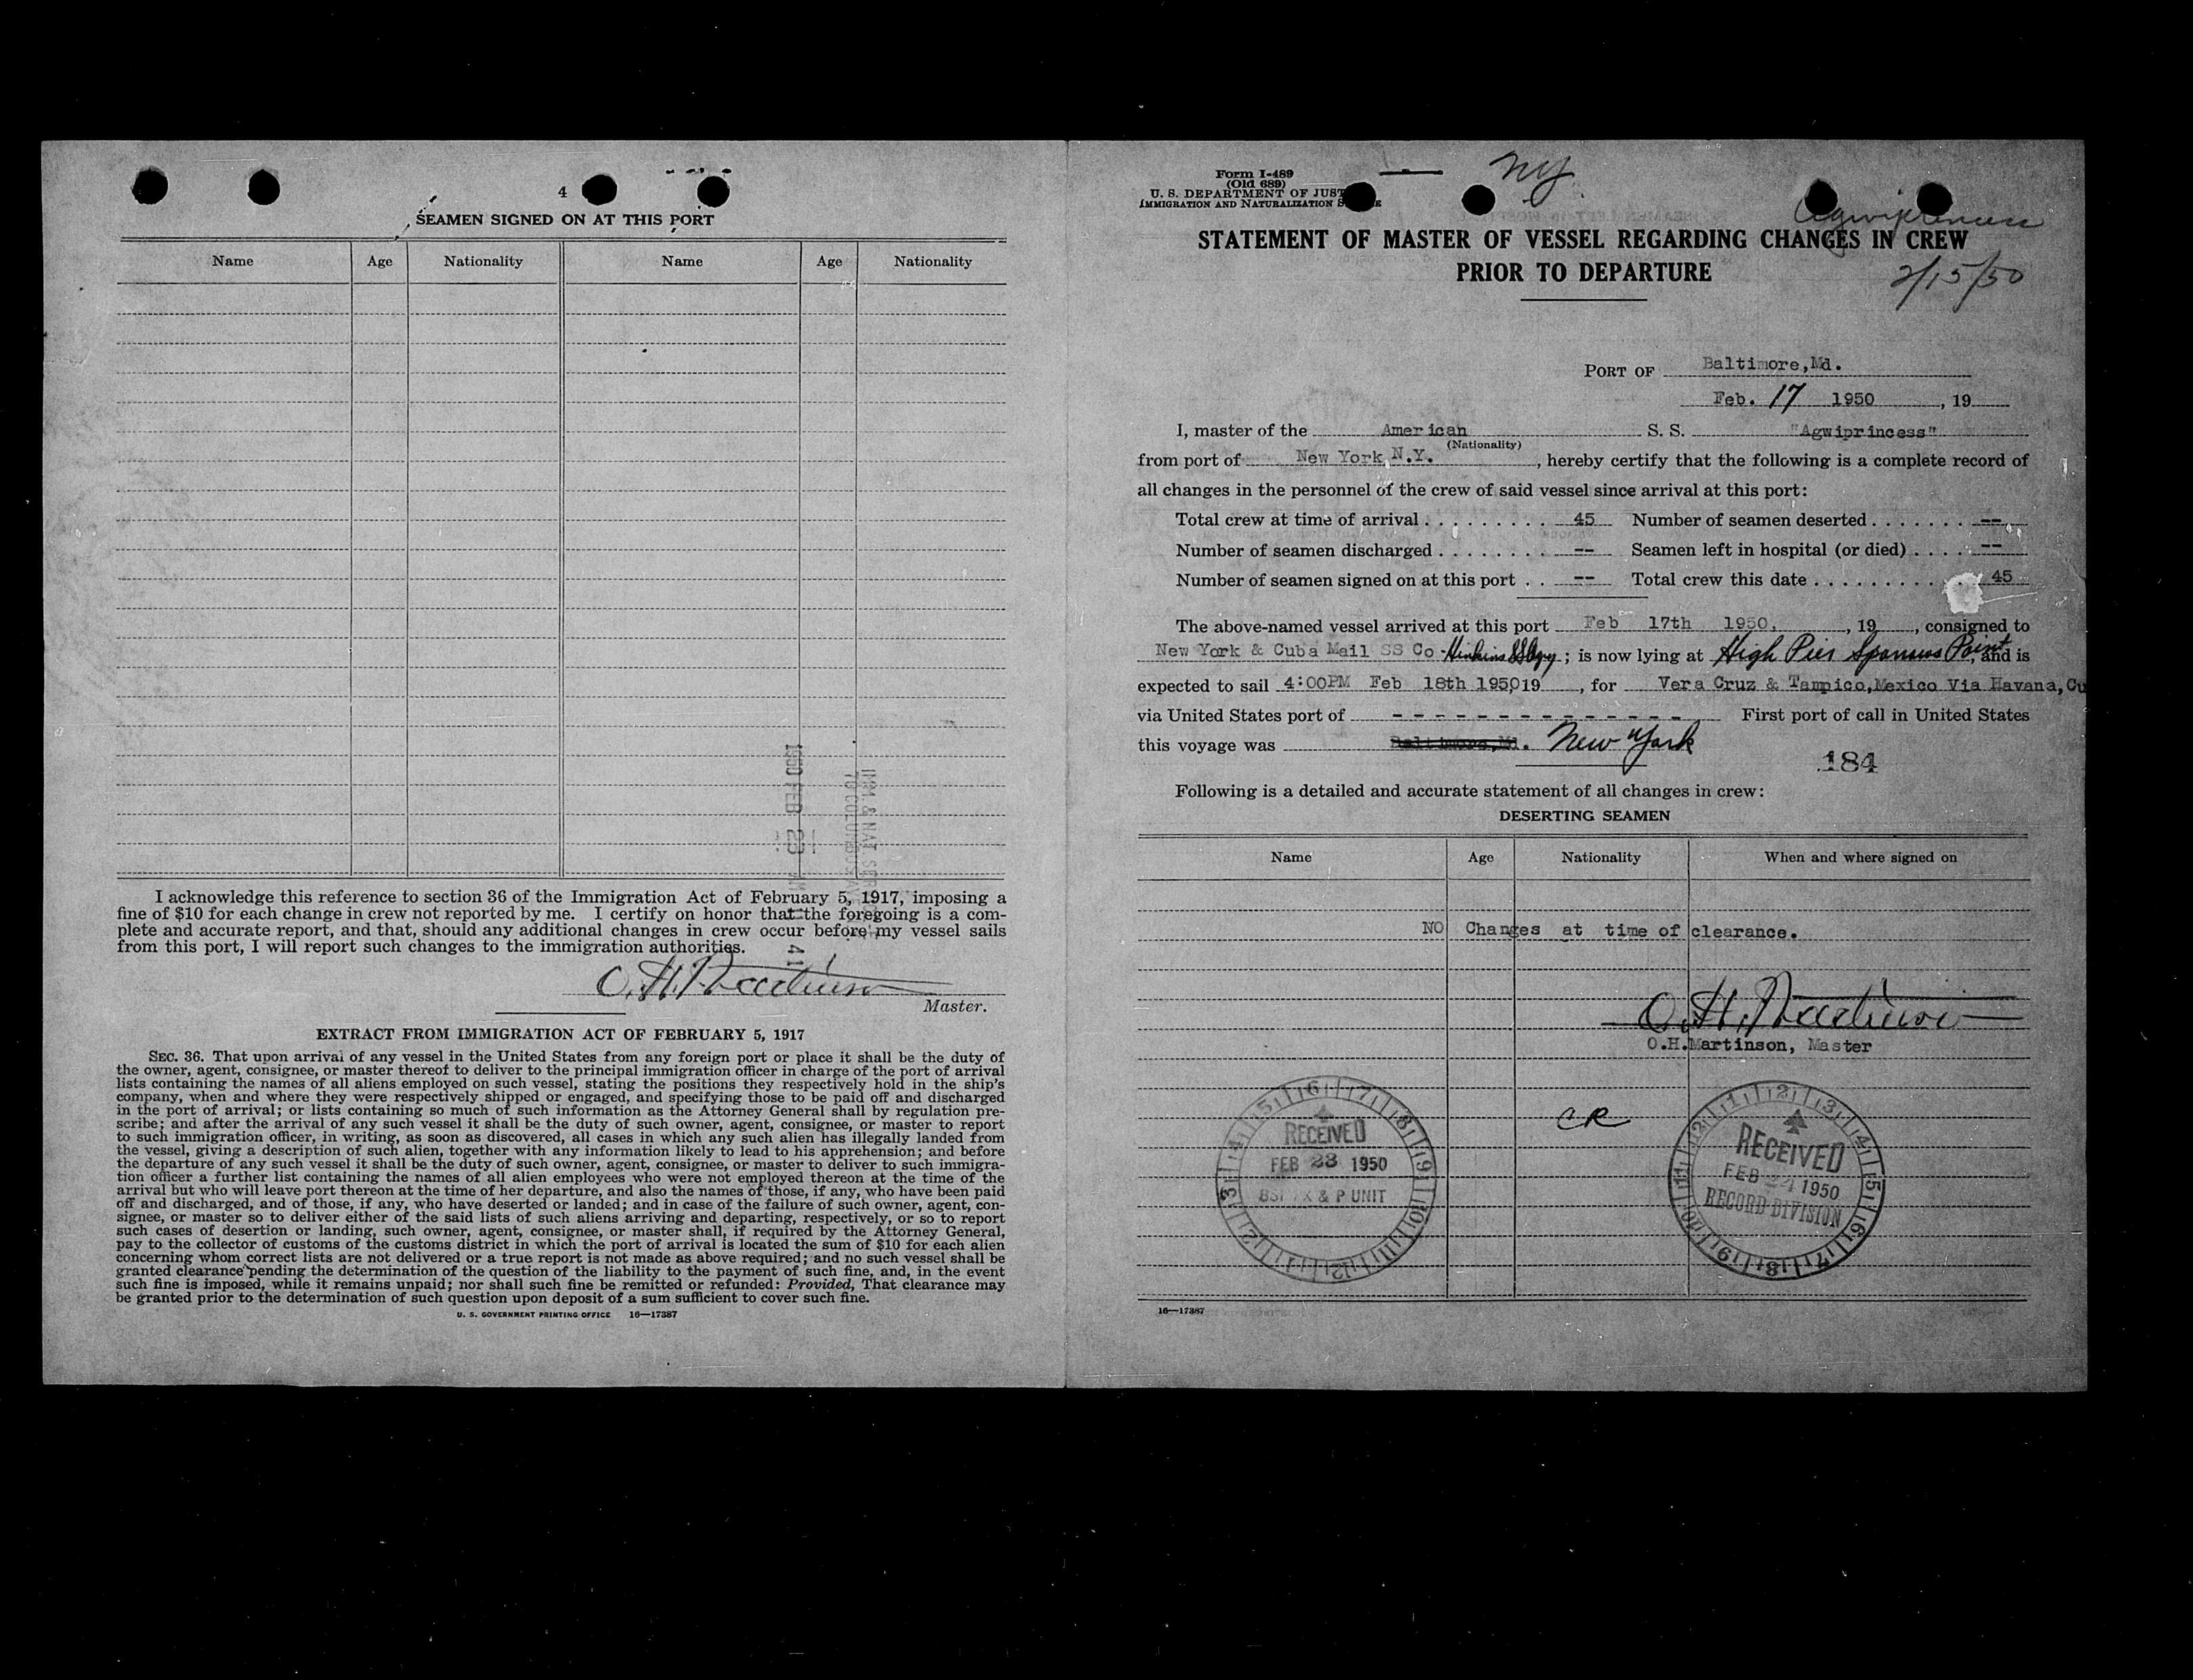 4
SEAMEN SIGNED ON AT THIS PORT
Name Age Nationality Name Age Nationality
1950 FEB 23 AM 11 41
I acknowledge this reference to section 36 of the Immigration Act of February 5, 1917, imposing a
fine of $10 for each change in crew not reported by me. I certify on honor that the foregoing is a com-
plete and accurate report, and that, should any additional changes in crew occur before my vessel sails
from this port, I will report such changes to the immigration authorities.
O. H. Martinson
Master.
EXTRACT FROM IMMIGRATION ACT OF FEBRUARY 5, 1917
SEC. 36. That upon arrival of any vessel in the United States from any foreign port or place it shall be the duty of
the owner, agent, consignee, or master thereof to deliver to the principal immigration officer in charge of the port of arrival
lists containing the names of all aliens employed on such vessel, stating the positions they respectively hold in the ship's
company, when and where they were respectively shipped or engaged, and specifying those to be paid off and discharged
in the port of arrival; or lists containing so much of such information as the Attorney General shall by regulation pre-
scribe; and after the arrival of any such vessel it shall be the duty of such owner, agent, consignee, or master to report
to such immigration officer, in writing, as soon as discovered, all cases in which any such alien has illegally landed from
the vessel, giving a description of such alien, together with any information likely to lead to his apprehension; and before
the departure of any such vessel it shall be the duty of such owner, agent, consignee, or master to deliver to such immigra-
tion officer a further list containing the names of all alien employees who were not employed thereon at the time of the
arrival but who will leave port thereon at the time of her departure, and also the names of those, if any, who have been paid
off and discharged, and of those, if any, who have deserted or landed; and in case of the failure of such owner, agent, con-
signee, or master so to deliver either of the said lists of such aliens arriving and departing, respectively, or so to report
such cases of desertion or landing, such owner, agent, consignee, or master shall, if required by the Attorney General,
pay to the collector of customs of the customs district in which the port of arrival is located the sum of $10 for each alien
concerning whom correct lists are not delivered or a true report is not made as above required; and no such vessel shall be
granted clearance pending the determination of the question of the liability to the payment of such fine, and, in the event
such fine is imposed, while it remains unpaid; nor shall such fine be remitted or refunded: Provided, That clearance may
be granted prior to the determination of such question upon deposit of a sum sufficient to cover such fine.
U. S. GOVERNMENT PRINTING OFFICE 16—17387
Form I-489
(Old 689)
U. S. DEPARTMENT OF JUST
IMMIGRATION AND NATURALIZATION S E
NY
Agwiprincess
STATEMENT OF MASTER OF VESSEL REGARDING CHANGES IN CREW
PRIOR TO DEPARTURE
2/15/50
PORT OF Baltimore,Md.
Feb. 17 1950 , 19
I, master of the American S. S. "Agwiprincess"
(Nationality)
from port of New York N.Y. , hereby certify that the following is a complete record of
all changes in the personnel of the crew of said vessel since arrival at this port:
Total crew at time of arrival . . . . . . . . . 45 Number of seamen deserted . . . . . . . --
Number of seamen discharged . . . . . . . . -- Seamen left in hospital (or died) . . . . --
Number of seamen signed on at this port . . -- Total crew this date . . . . . . . . . . 45
The above-named vessel arrived at this port Feb 17th 1950, , 19 , consigned to
New York & Cuba Mail SS Co - Hinkins SS Agy ; is now lying at High Pier Sparrows Point, and is
expected to sail 4:00PM Feb 18th 1950 19 , for Vera Cruz & Tampico,Mexico Via Havana,Cu
via United States port of - - - - - - - - - - - - - - First port of call in United States
this voyage was Baltimore,Md. New York
184
Following is a detailed and accurate statement of all changes in crew:
DESERTING SEAMEN
Name Age Nationality When and where signed on
NO Changes at time of clearance.
O. H. Martinson
O.H.Martinson, Master
CR
RECEIVED
FEB 23 1950
& P UNIT
RECEIVED
FEB 24 1950
RECORD DIVISION
16—17387